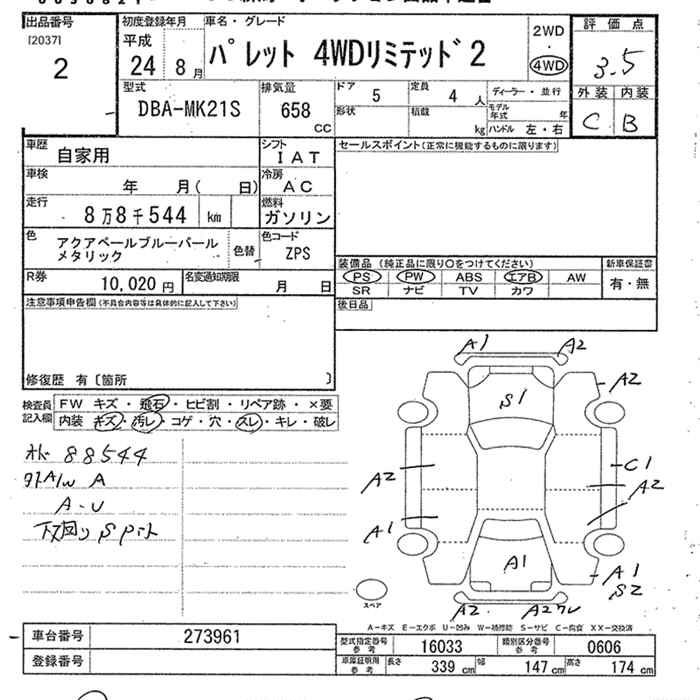 出品番号
[2037]
2
初度登録年月
平成
24 8 月
車名・グレード
パレット 4WDリミテッド2
2WD
・
4WD
評価点
3.5
外装 内装
C B
型式
DBA-MK21S
排気量
658
CC
ドア 5
定員 4 人
ディーラー・並行
形状
積載 kg
モデル年式 年
ハンドル 左・右
車歴
自家用
シフト
IAT
セールスポイント(正常に機能するものに限ります)
車検
年 月( 日)
冷房
AC
走行
8万8千544 km
燃料
ガソリン
色
アクアベールブルーパール
メタリック
色替
色コード
ZPS
装備品(純正品に限り○をつけてください)
新車保証書
PS PW ABS エアB AW
有・無
SR ナビ TV カワ
R券
10,020 円
名変通知期限
月 日
後日品
注意事項申告欄(不具合内容等は具体的に記入して下さい)
修復歴 有〔箇所 〕
検査員
記入欄
FW キズ・飛石・ヒビ割・リペア跡・×要
内装 キズ・汚レ・コゲ・穴・スレ・キレ・破レ
88544
A
A-U
下回り S
A1 A2
A2
S1
C1
A2 A2
A1
A1
A1
S2
A2 A2
スペア
A-キズ E-エクボ U-凹み W-補修跡 S-サビ C-腐食 XX-交換済
車台番号 273961
登録番号
型式指定番号
参考
16033
類別区分番号
参考
0606
車庫証明用
参考
長さ 339 cm
幅 147 cm
高さ 174 cm